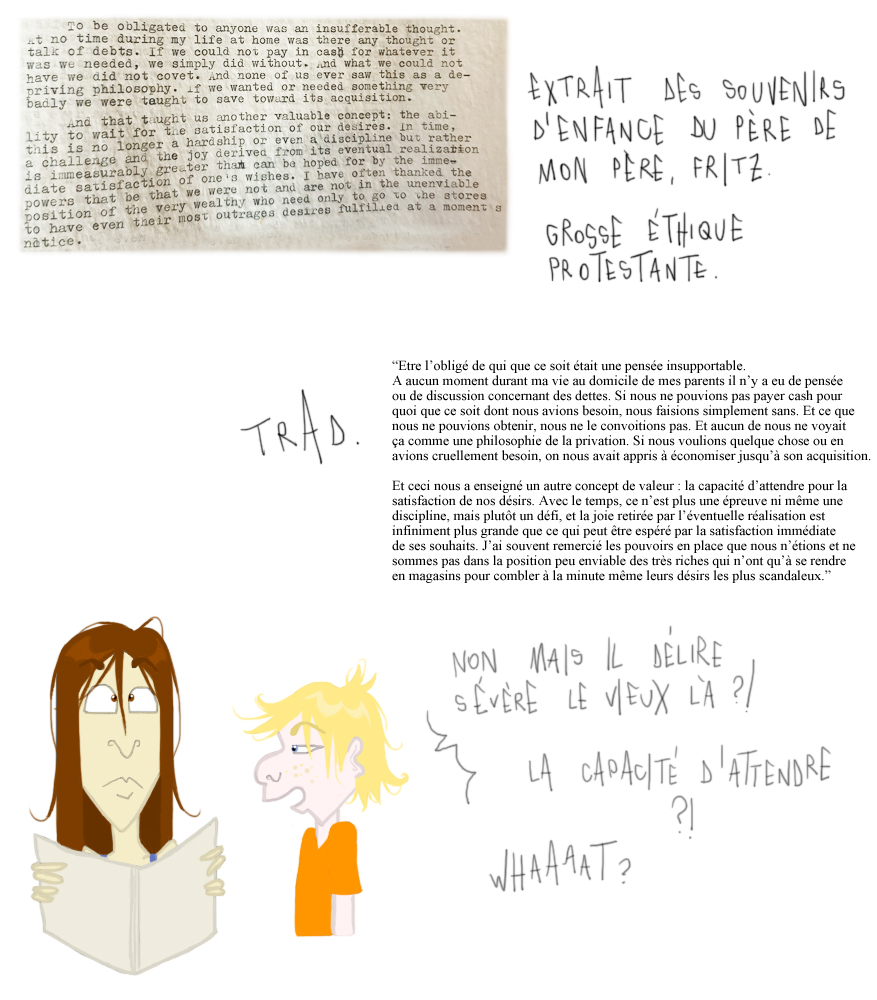 To be obligated to anyone was an insufferable thought.
At no time during my life at home was there any thought or
talk of debts. If we could not pay in cash for whatever it
was we needed, we simply did without. And what we could not
have we did not covet. And none of us ever saw this as a de-
priving philosophy. If we wanted or needed something very
badly we were taught to save toward its acquisition.
And that taught us another valuable concept: the abi-
lity to wait for the satisfaction of our desires. In time,
this is no longer a hardship or even a discipline but rather
a challenge and the joy derived from its eventual realization
is immeasurably greater than can be hoped for by the imme-
diate satisfaction of one's wishes. I have often thanked the
powers that be that we were not and are not in the unenviable
position of the very wealthy who need only to go to the stores
to have even their most outrages desires fulfilled at a moment's
notice.
EXTRAIT DES SOUVENIRS
D'ENFANCE DU PÈRE DE
MON PÈRE, FRITZ.
GROSSE ÉTHIQUE
PROTESTANTE.
TRAD.
“Etre l’obligé de qui que ce soit était une pensée insupportable.
A aucun moment durant ma vie au domicile de mes parents il n’y a eu de pensée
ou de discussion concernant des dettes. Si nous ne pouvions pas payer cash pour
quoi que ce soit dont nous avions besoin, nous faisions simplement sans. Et ce que
nous ne pouvions obtenir, nous ne le convoitions pas. Et aucun de nous ne voyait
ça comme une philosophie de la privation. Si nous voulions quelque chose ou en
avions cruellement besoin, on nous avait appris à économiser jusqu’à son acquisition.
Et ceci nous a enseigné un autre concept de valeur : la capacité d’attendre pour la
satisfaction de nos désirs. Avec le temps, ce n’est plus une épreuve ni même une
discipline, mais plutôt un défi, et la joie retirée par l’éventuelle réalisation est
infiniment plus grande que ce qui peut être espéré par la satisfaction immédiate
de ses souhaits. J’ai souvent remercié les pouvoirs en place que nous n’étions et ne
sommes pas dans la position peu enviable des très riches qui n’ont qu’à se rendre
en magasins pour combler à la minute même leurs désirs les plus scandaleux.”
NON MAIS IL DÉLIRE
SÉVÈRE LE VIEUX LÀ ?!
LA CAPACITÉ D'ATTENDRE
?!
WHAAAAT ?